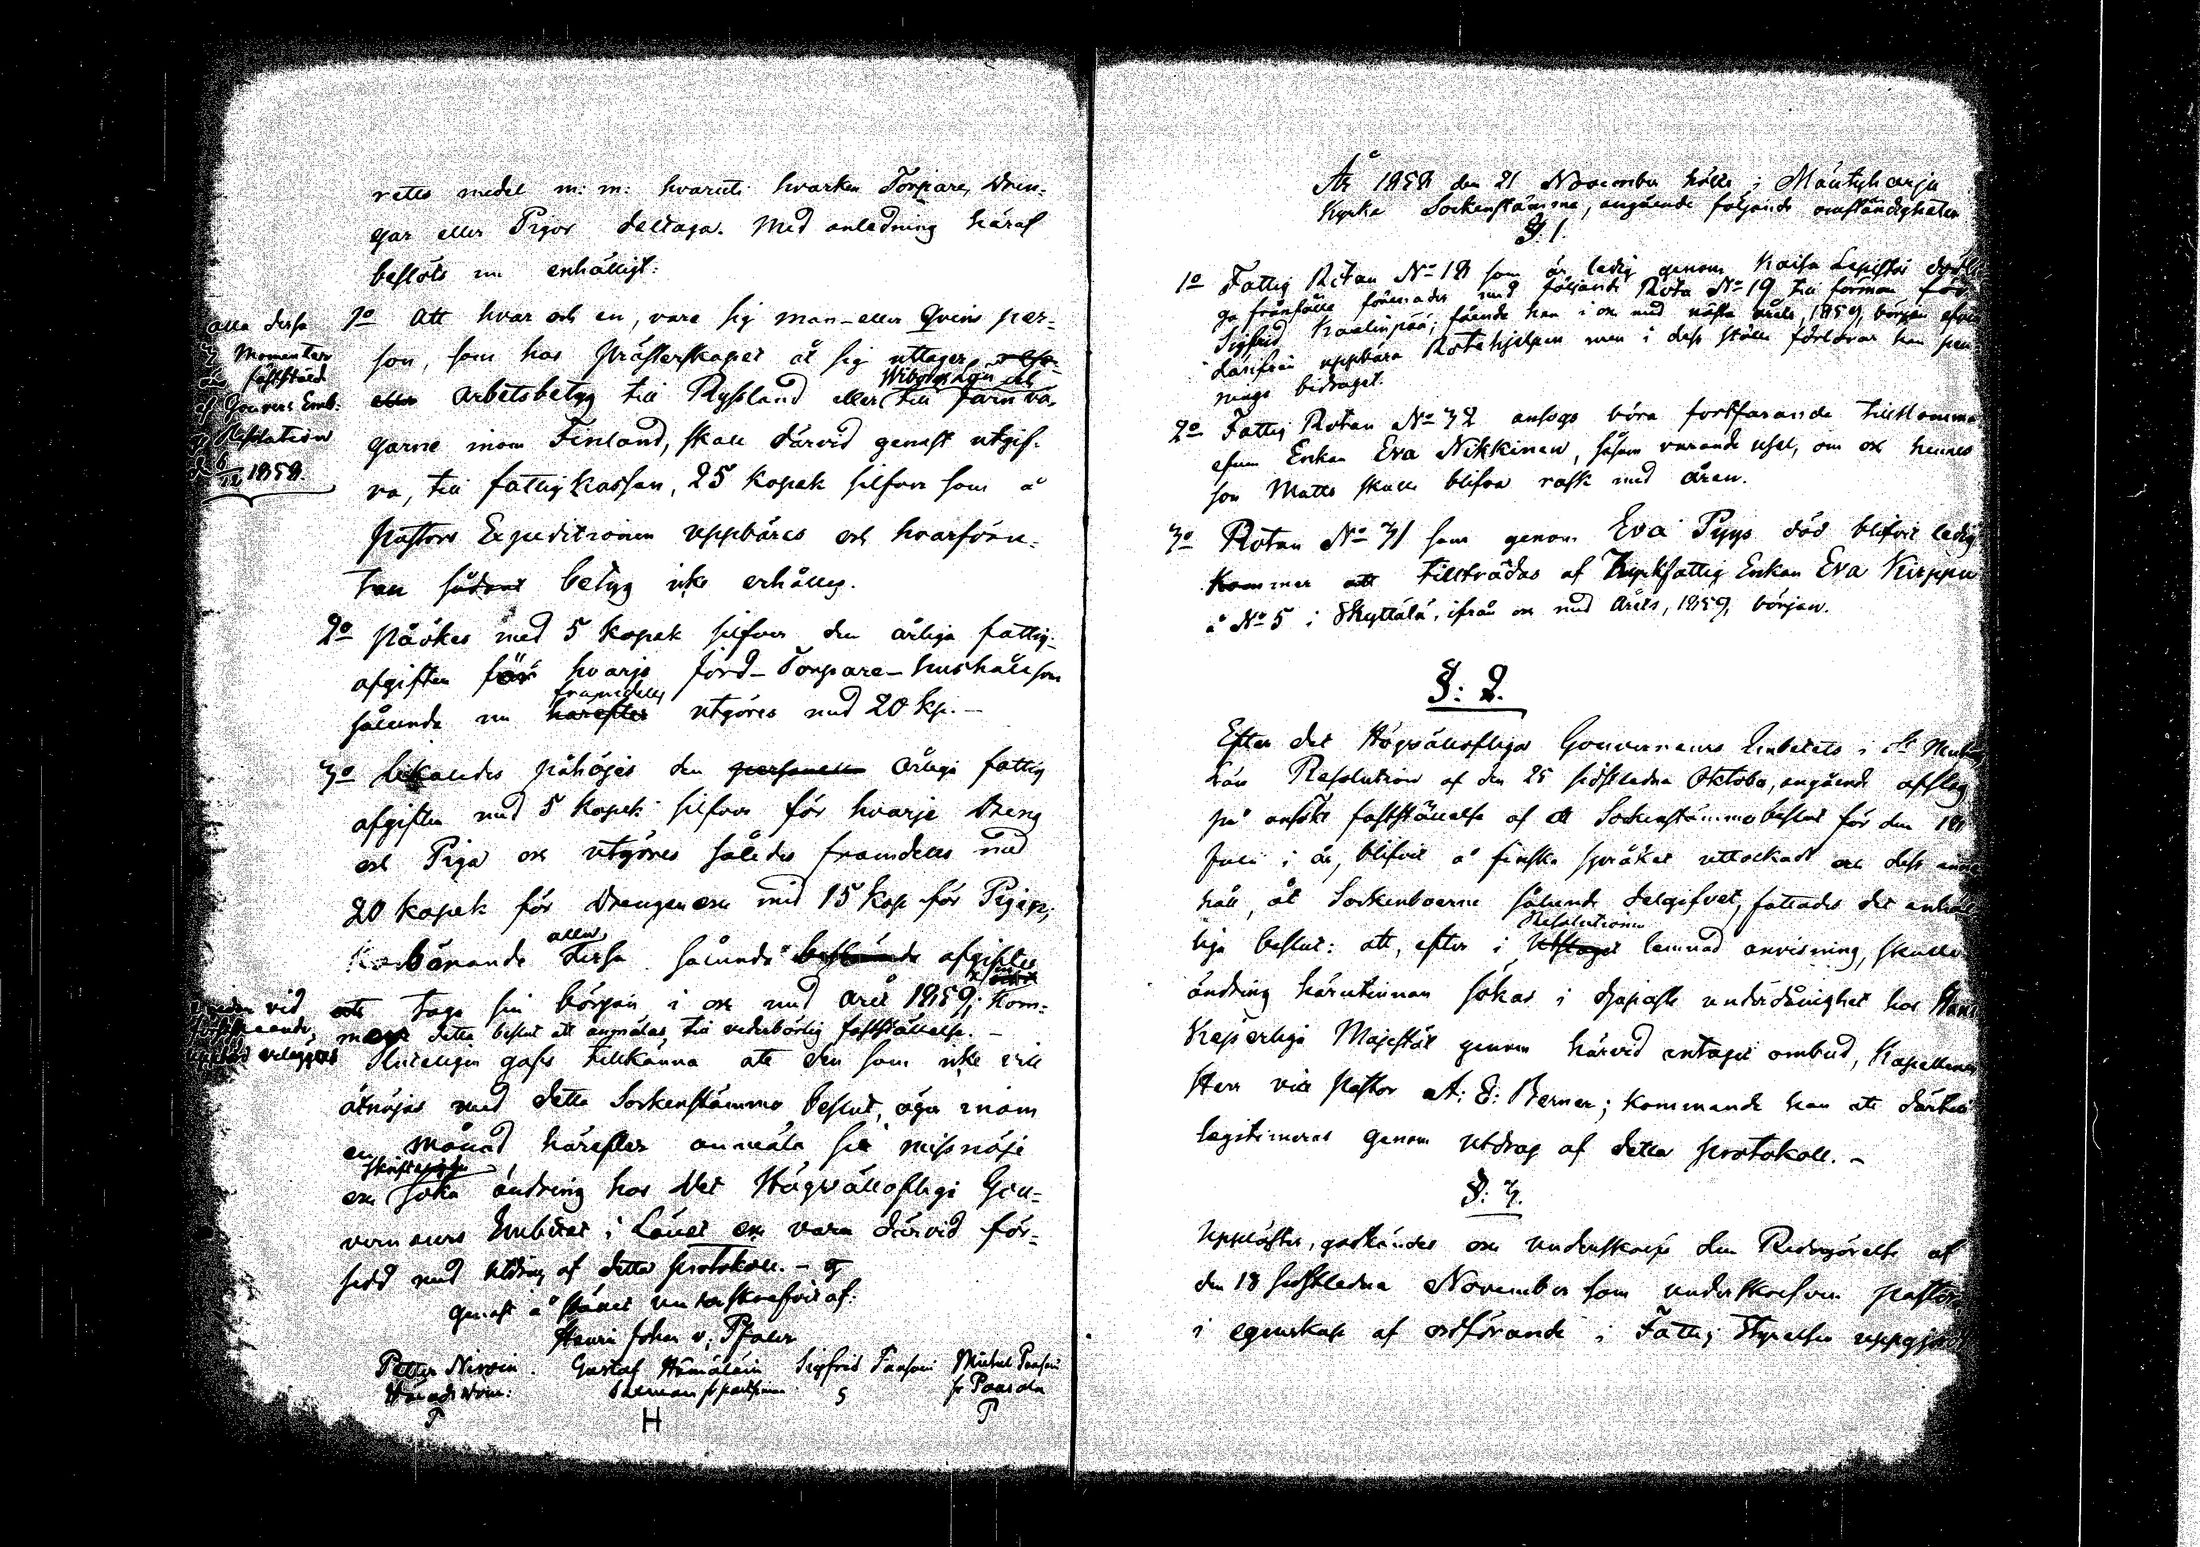 rätts medel m: m: hvaruti hvarken Torpare, Drän-
gar eller Pigor deltaga. Med anledning häraf
beslöts nu enhälligt:
1o Att hvar och en, vare sig man- eller Qvins per-
son, som hos Prästerskapet åt sig uttager
Wiborgs Län och
eller arbetsbetyg till Ryssland eller till järnvä-
garne inom Finland, skall därvid genast utgif-
va, till fattigkassan, 25 kopek silfver som å
Pastors Expeditionen uppbäres och hvarföru-
tan sådant betyg icke erhålles.
2o påökes med 5 kopek silfver den årliga fattig-
afgiften för hvarje Jord- Torpare- hushåll som
framdeles
sålunda nu härefter utgöres med 20 kp. —
3o likaledes påhöjes den personella årliga fattig
afgiften med 5 kopek silfver för hvarje Dreng
och Piga och utgöres således framdeles med
20 kopek för Drengen och med 15 kop för Pigan;
alla
börande dessa sålunda afgifter
att taga sin början i och med året 1859; kom-
mer detta beslut att anmälas till vederbörlig fastställelse. —
Sluteligen gafs tillkänna att den som icke vill
åtnöjas med detta Sockenstämmo beslut, äger inom
en månad härefter anmäla sit missnöje
skrifteligen
och söka ändring hos Det Högvällofliga Gou-
verneurs Embetet i Länet och vara därvid för-
sedd med utdrag af detta protokoll. —
genast å stället underskrefvit af:
Henri Johan v: Pfaler
Petter Nirvin. Gustaf Hämäläin Sigfrid Michel
Häradsdom: S Paasola
P H P
alla dessa
3 Momenter
äro fastställd
af Gouvers Emb:
Resolution
d 6/12 1858.
vid
År 1858 den 21 November hölls i Mäntyharju
Kyrka Sockenstämma, angående följande omständigheter
§: 1.
1o Fattig Rotan No 18 som är ledig genom Kaisa Lepistös dödli-
ga frånfälle förenades med följande Rota No 19 till förmån för
Sigfrid Kaalinpää; fående han i och med nästa års, 1859, början äfven
därifrån uppbära Rotehjelpen men i dess ställe förlorar han pen-
nings bidraget.
2o Fattig Rotan No 32 ansågs böra fortfarande tillkomma
Enkan Eva Nikkinen, såsom varande usel, om och hennes
son Matts skulle blifva rask med åren.
3o Rotan No 31 som genom Eva Pyys död blifvit ledig
kommer att tillträdas af Enkan Eva Kirppu
å No 5 i Skyttälä, ifrån och med årets, 1859, början.
§: 2.
Efter det Högvällofliga Gouverneurs Embetets i St Michels
Län Resolution af den 25 sidstledna Oktober, angående afslag
på ansökt fastställelse af ett Sockenstämmobeslut för den 18
Juli i år, blifvit å finska språket uttolkad och dess inne-
håll, åt Sockenboerne sålunda delgifvet, fattades det enhäl-
Resolutionen
liga beslut: att, efter i Utslaget lemnad anvisning, skulle
ändring härutinnan sökas i djupaste underdånighet hos Hans
Kejserliga Majestät genom härvid antaget ombud, Kapellanen
Herr vice Pastor A: E: Berner; kommande han att därtill
legitimeras genom utdrag af detta protokoll. —
§: 3.
Upplästes, godkändes och underskrefs den Redogörelse af
den 18 sidstledna November som underskrefven pastor
i egenskap af ordförande i Fattig Styrelsen uppgjort